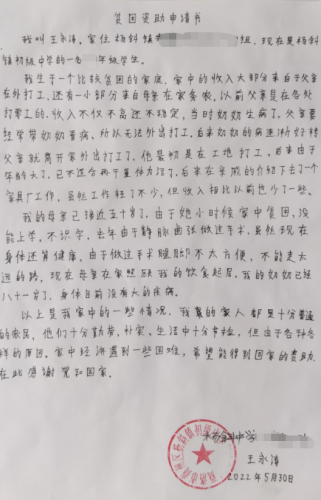 贫困资助申请书
我叫王永涛，家住杨斜镇 组，现在是杨斜
镇初级中学的一名 年级学生。
我生于一个比较贫困的家庭，家中的收入大部分来自于父亲
在外打工，还有一小部分来自母亲在家务农，以前父亲是在各处
打零工的，收入不仅不高还不稳定，当时奶奶生病了，父亲要
经常带奶奶看病，所以无法外出打工，后来奶奶的病逐渐好转
父亲就离开家外出打工了，他最初是在工地打工，后来由于
年龄大了，已不适合再干重体力活了，后来在亲戚的介绍下去了一个
家具厂工作，虽然工作轻了不少，但收入相比以前也少了一些。
我的母亲已接近五十岁了，由于她小时候家中贫困，没
能上学，不识字，去年由于静脉曲张做过手术，虽然现在
身体还算健康，由于做过手术腿脚不太方便，不能走太
远的路，现在母亲在家照顾我的饮食起居，我的奶奶已经
八十一岁了，身体目前没有大的疾病。
以上是我家中的一些情况，我 的家人都是十分普通
的农民，他们十分勤劳、朴实，生活中十分节俭，但由于各种各
样的原因，家中经济遇到一些困难，希望能得到国家的资助，
在此感谢党和国家。
杨斜中学
王永涛
2022年5月30日